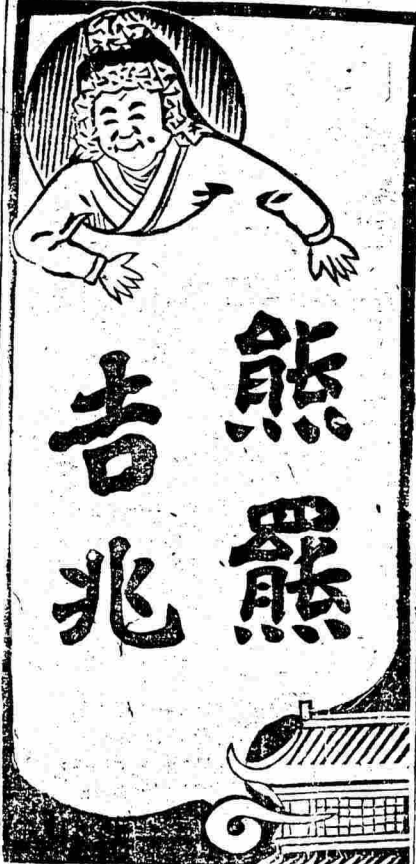 熊羆
吉兆